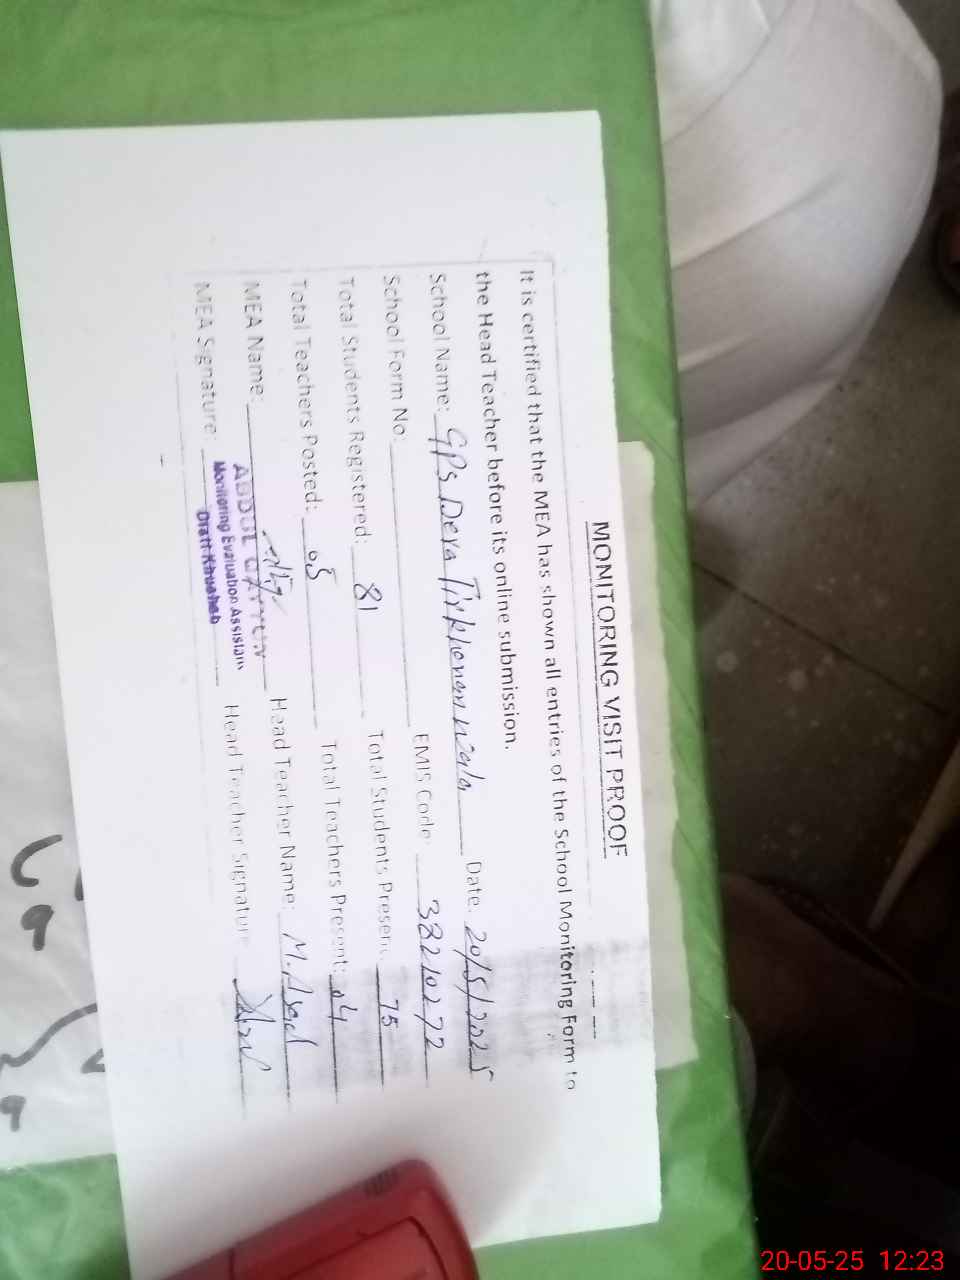 MONITORING VISIT PROOF
It is certified that the MEA has shown all entries of the School Monitoring Form to
the Head Teacher before its online submission.
School Name: GPS Dera Date: 20/5/2025
School Form No. EMIS Code: 38210272
Total Students Registered: 81 Total Students Presen
Total Teachers Posted: 05 Total Teachers Present: 04
75
MEA Name: Head Teacher Name: M. Asad
ABDUL QAYYUM
MEA Signature: Head Teacher Signature
Monitoring Evaluation Assistant
20-05-25 12:23